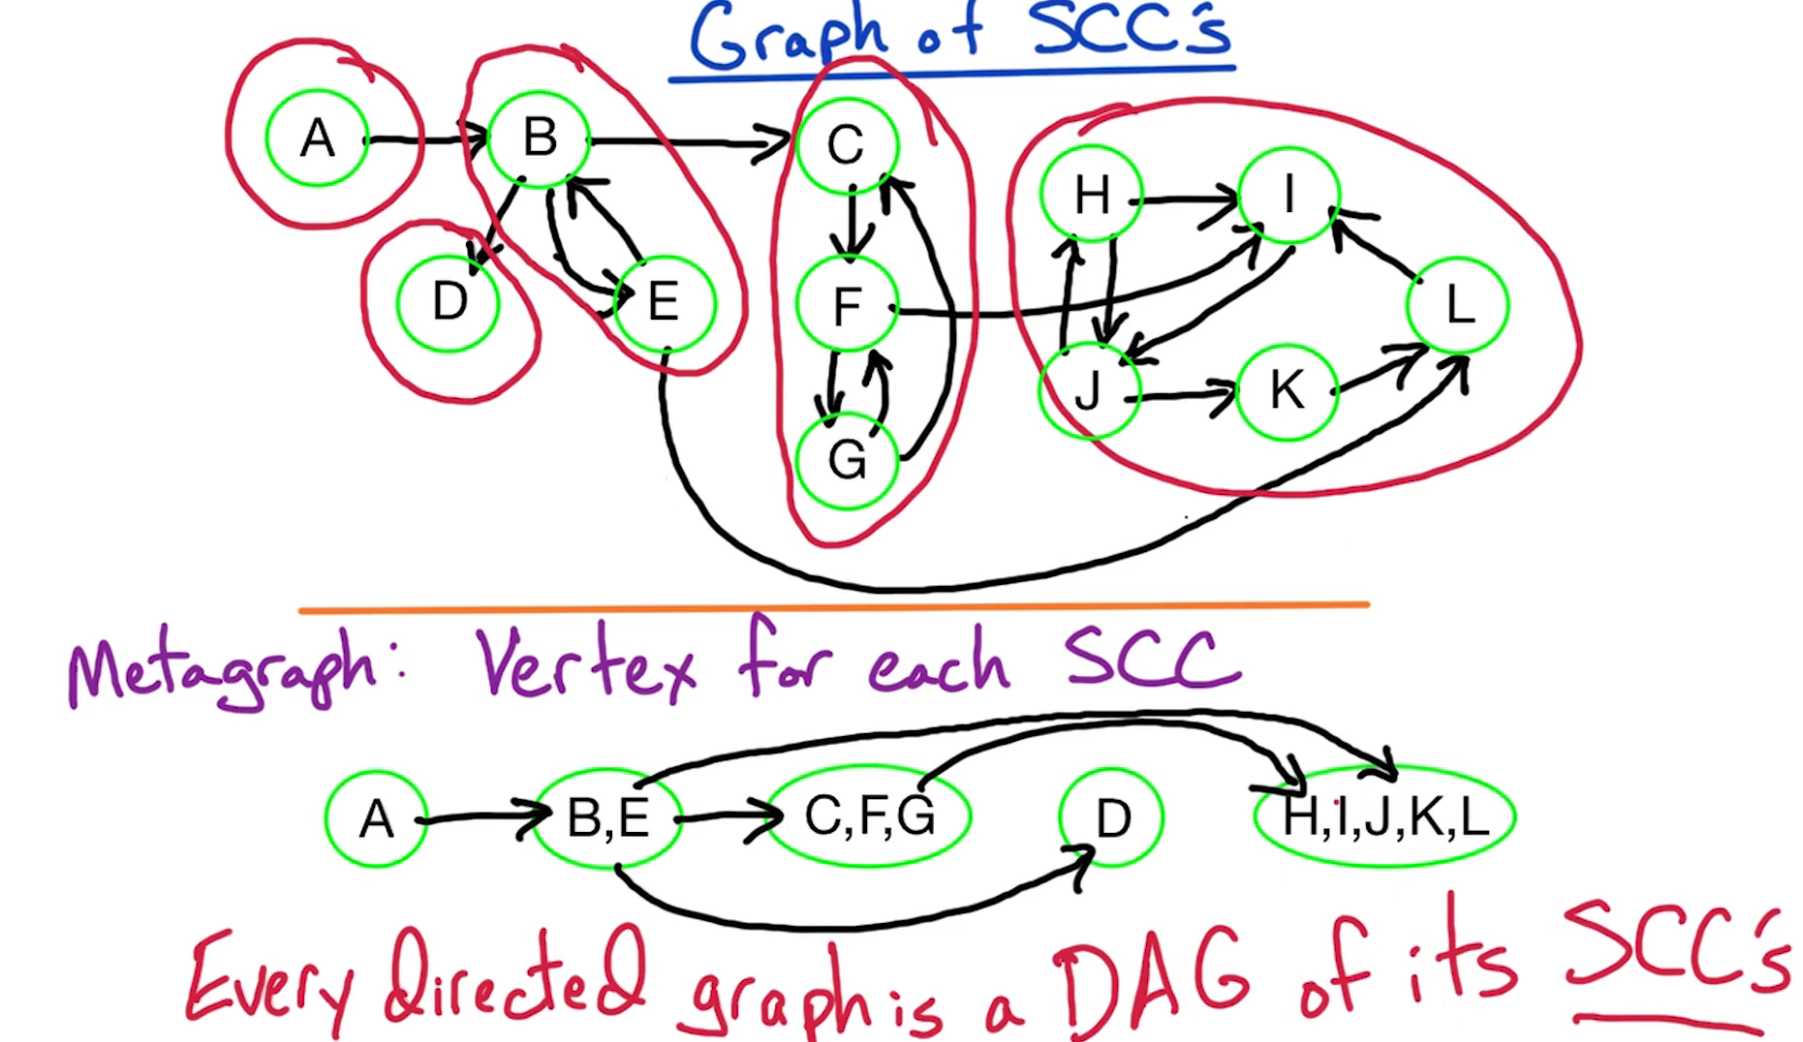 Graph of SCC's
A B C H I
D E F L
J K
G
Metagraph: Vertex for each SCC
A B,E C,F,G D H,I,J,K,L
Every directed graph is a DAG of its SCC's